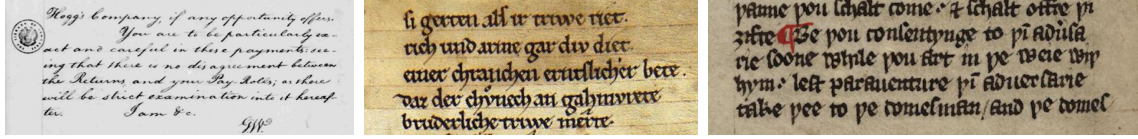 Hogg's Company, if any opportunity offers.
You are to be particularly ex-
act and careful in these payments: see-
ing that there is no disagreement between
the Returns and your Pay Rolls; as there
will be strict examination into it hereaf-
ter. I am &c.
GW.
si gerten alſ ir triwe riet.
rich und arme gar div diet.
einer chranchen ernſtlicher bete.
daz der chv̊nech an gahmvrete
brv̊derliche triwe merte.
þanne þou schalt come· & schalt offre þi
ȝifte ¶ Be þou consentynge to þi adũsa
rie soone while þou art in þe weie wiþ
hym· lest parauenture þi aduersarie
take þee to þe domesman/ and þe domes